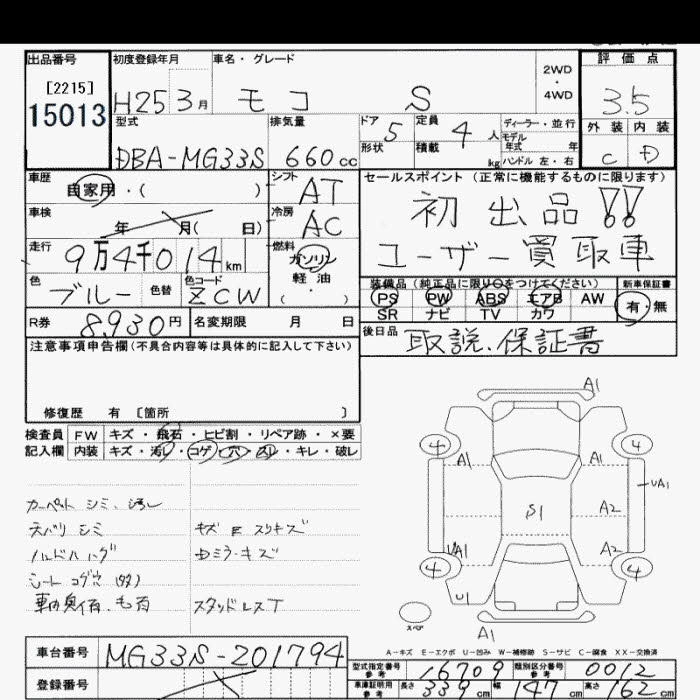 出品番号 初度登録年月 車名・グレード 評価点
[2215] 2WD・4WD
15013 H25 3月 モコ S 3.5
型式 排気量 ドア 5 定員 4人 ディーラー・並行 外装 内装
DBA-MG33S 660cc 形状 積載 kg モデル年式 年 C D
ハンドル 左・右
車歴 自家用・( ) シフト AT セールスポイント (正常に機能するものに限ります)
車検 年 月( 日) 冷房 AC 初出品!!
走行 9万4千014km 燃料 ガソリン ユーザー買取車
軽油
( ・ )
色 ブルー 色替 色コード ZCW 装備品 (純正品に限り○をつけてください) 新車保証書
PS PW ABS エアB AW 有・無
R券 8,930円 名変期限 月 日 SR ナビ TV カワ
注意事項申告欄(不具合内容等は具体的に記入して下さい) 後日品 取説、保証書
修復歴 有 [箇所 ]
検査員 FW キズ・飛石・ヒビ割・リペア跡・×要
記入欄 内装 キズ・汚レ・コゲ・穴・スレ・キレ・破レ
A1
4 4
A1 A1
A1
S1 A2
A2
4 4
U1
A1
スペア
カーペットシミ、汚レ
天バリシミ キズ E スリキズ
ミラーキズ
シートコゲ穴
スタッドレスT
A-キズ E-エクボ U-凹ミ W-補修跡 S-サビ C-腐食 XX-交換済
車台番号 MG33S-201794
型式指定番号 参考 16709 類別区分番号 参考 0012
登録番号 車庫証明用 参考 長さ 339cm 幅 147cm 高さ 162cm